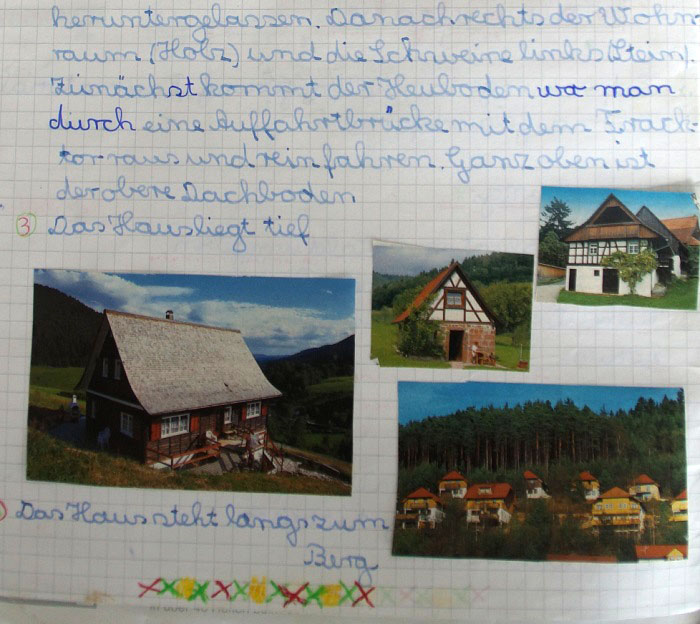 heruntergelassen. Danach rechts der Wohn
raum (Holz) und die Schweine links (Stein).
Zunächst kommt der Heuboden wo man
durch eine Auffahrtbrücke mit dem Track-
tor raus und rein fahren. Ganz oben ist
der obere Dachboden
3 Das Haus liegt tief
Das Haus steht langs zum
Berg